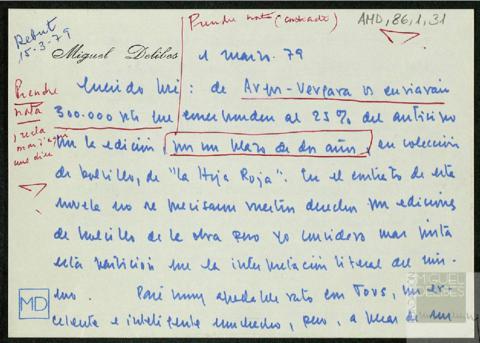 Prendre nota (contracte)
AMD, 86, 1, 31
Rebut
15-3-79
Miguel Delibes
1 marzo. 79
Prendre
nota
Querido mi : de Argos-Vergara os enviarán
300.000 pts que corresponden al 25% del anticipo
por la edición, por un plazo de dos años, en colección
de bolsillo, de "La Hoja Roja". En el contrato de esta
novela no se precisaron vuestros derechos por ediciones
de bolsillo de la obra pero yo considero más justa
esta partición que la interpretación literal del mis-
mo. Pasé muy agradable rato con Tovs, un ex-
celente e inteligente muchacho, pero, a pesar de su
MD
MIGUEL
DELIBES